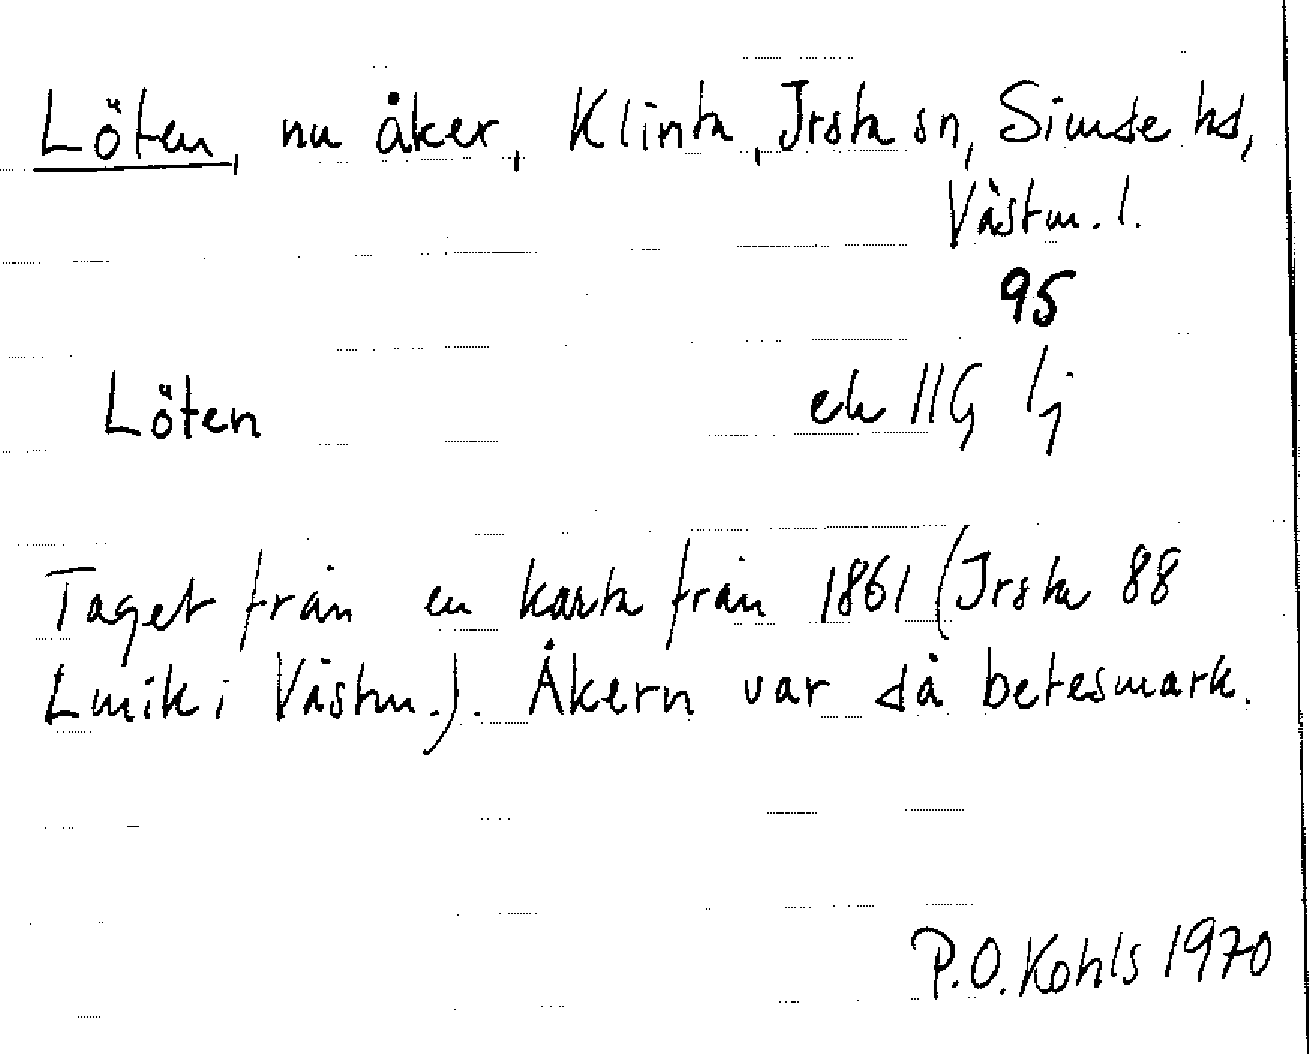 Löten, nu åker, Klinta, Irsta sn, Simde hd,
Västm. l.
95
Löten ek 11G
Taget från en karta från 1861 (Irsta 88
Lmik i Västm.). Åkern var då betesmark.
P.O. Kohls 1970